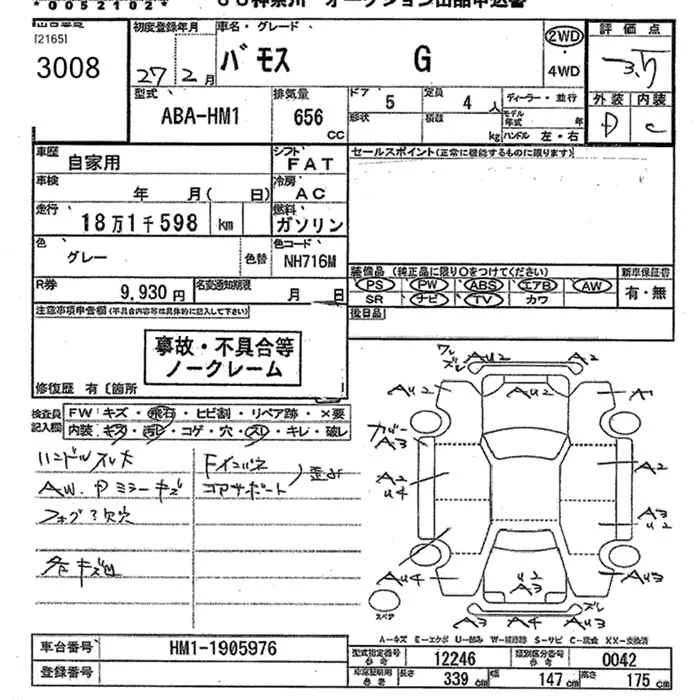 *0052102* ＵＳ神奈川 オークション出品申込書
[2165]
3008
初度登録年月
27年 2月
車名・グレード
バモス G
2WD
・
4WD
評価点
3.5
外装 内装
D C
型式
ABA-HM1
排気量
656 CC
ドア 5
定員 4人
形状
積載 kg
ディーラー・並行
モデル年式 年
ハンドル 左・右
車歴
自家用
シフト
FAT
セールスポイント(正常に機能するものに限ります)
車検
年 月( 日)
冷房
AC
走行
18万1千598 km
燃料
ガソリン
色
グレー
色替
色コード
NH716M
装備品 (純正品に限り○をつけてください)
新車保証書
PS PW ABS エアB AW
有・無
SR ナビ TV カワ
R券
9,930円
名変通知期限
月 日
後日品
注意事項申告欄(不具合内容等は具体的に記入して下さい)
事故・不具合等
ノークレーム
修復歴 有〔箇所
検査員
記入欄
FW:キズ・飛石・ヒビ割・リペア跡・×要
内装:キズ・汚レ・コゲ・穴・スレ・キレ・破レ
ハンドルスレ大
AW, Pミラーキズ
Fインパネ
コアサポート
歪み
各キズ凹
ワレ
ズレ
AU2
A2
AU2
AU2
A1
カバー
A3
A2
U4
A2
A3
U2
AU4
U2
A3
AU3
スペア
ズレ
A3
A4
AU3
A-キズ E-エクボ U-凹み W-補修跡 S-サビ C-腐食 XX-交換済
車台番号
HM1-1905976
登録番号
型式指定番号
参考
12246
類別区分番号
参考
0042
車庫証明用
参考
長さ 339 cm
幅 147 cm
高さ 175 cm